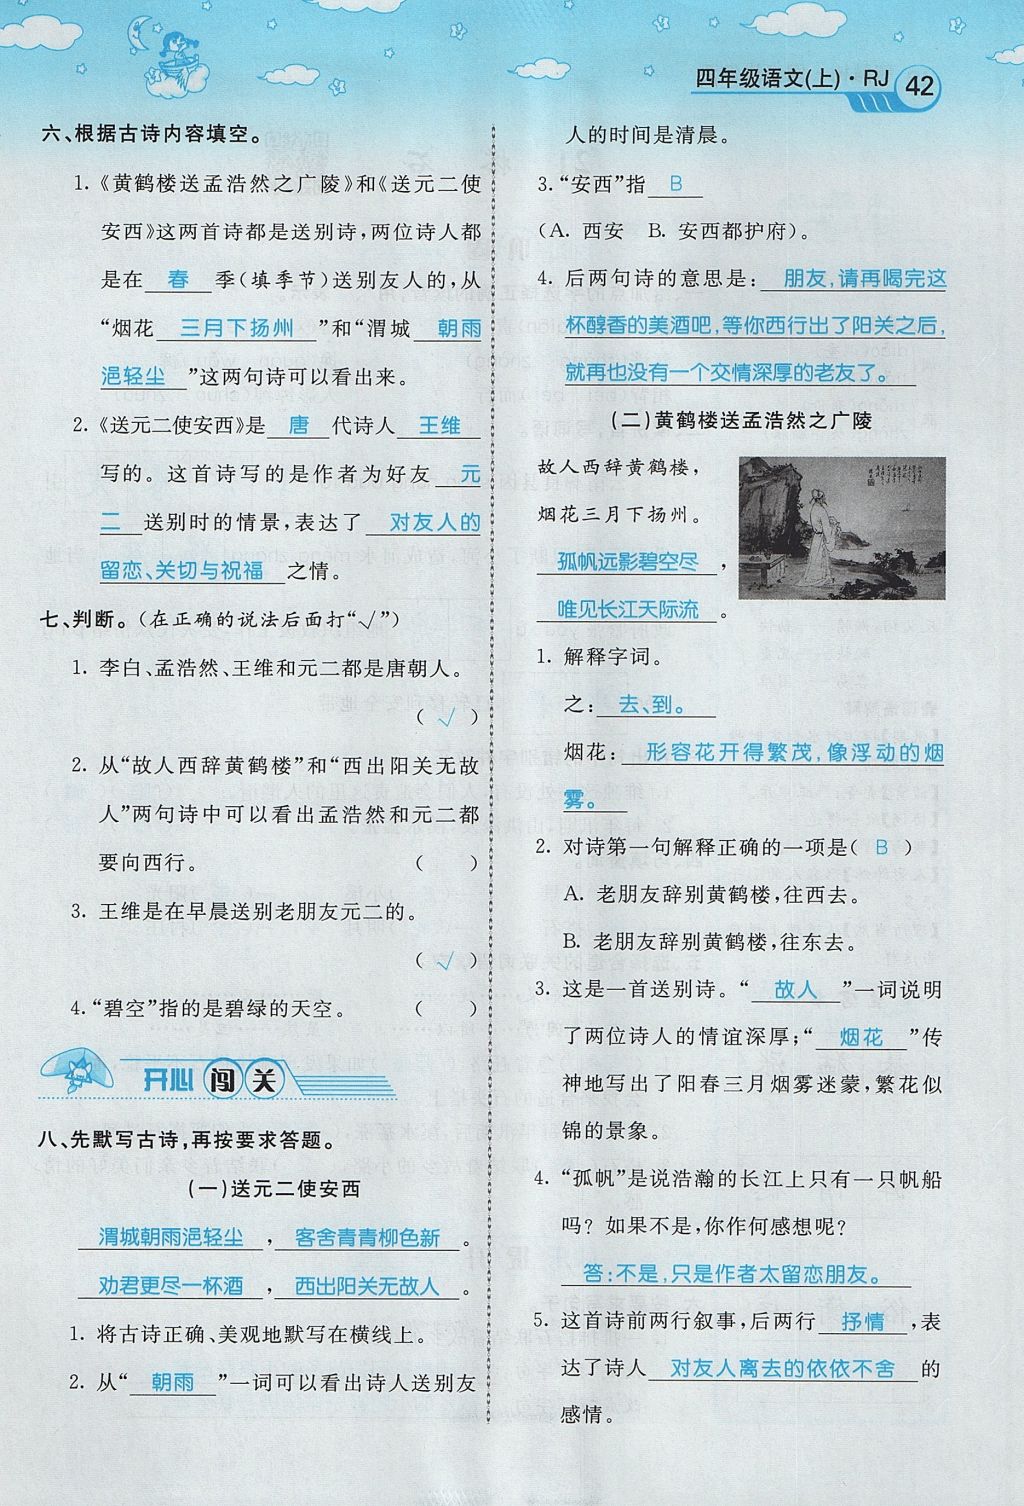 四年级语文(上)·RJ 42
六、根据古诗内容填空。
1.《黄鹤楼送孟浩然之广陵》和《送元二使
安西》这两首诗都是送别诗,两位诗人都
是在 春 季(填季节)送别友人的,从
“烟花 三月下扬州 ”和“渭城 朝雨
浥轻尘 ”这两句诗可以看出来。
2.《送元二使安西》是 唐 代诗人 王维
写的。这首诗写的是作者为好友 元
二 送别时的情景,表达了 对友人的
留恋、关切与祝福 之情。
七、判断。(在正确的说法后面打“√”)
1. 李白、孟浩然、王维和元二都是唐朝人。
( √ )
2. 从“故人西辞黄鹤楼”和“西出阳关无故
人”两句诗中可以看出孟浩然和元二都
要向西行。 ( )
3. 王维是在早晨送别老朋友元二的。
( √ )
4.“碧空”指的是碧绿的天空。 ( )
开心闯关
八、先默写古诗,再按要求答题。
(一)送元二使安西
渭城朝雨浥轻尘 , 客舍青青柳色新 。
劝君更尽一杯酒 , 西出阳关无故人 。
1. 将古诗正确、美观地默写在横线上。
2. 从“ 朝雨 ”一词可以看出诗人送别友
人的时间是清晨。
3.“安西”指 B
(A. 西安 B. 安西都护府)。
4. 后两句诗的意思是: 朋友,请再喝完这
杯醇香的美酒吧,等你西行出了阳关之后,
就再也没有一个交情深厚的老友了。
(二)黄鹤楼送孟浩然之广陵
故人西辞黄鹤楼,
烟花三月下扬州。
孤帆远影碧空尽 ,
唯见长江天际流 。
1. 解释字词。
之: 去、到。
烟花: 形容花开得繁茂,像浮动的烟
雾。
2. 对诗第一句解释正确的一项是( B )
A. 老朋友辞别黄鹤楼,往西去。
B. 老朋友辞别黄鹤楼,往东去。
3. 这是一首送别诗。“ 故人 ”一词说明
了两位诗人的情谊深厚;“ 烟花 ”传
神地写出了阳春三月烟雾迷蒙,繁花似
锦的景象。
4. “孤帆”是说浩瀚的长江上只有一只帆船
吗? 如果不是,你作何感想呢?
答:不是,只是作者太留恋朋友。
5. 这首诗前两行叙事,后两行 抒情 ,表
达了诗人 对友人离去的依依不舍 的
感情。